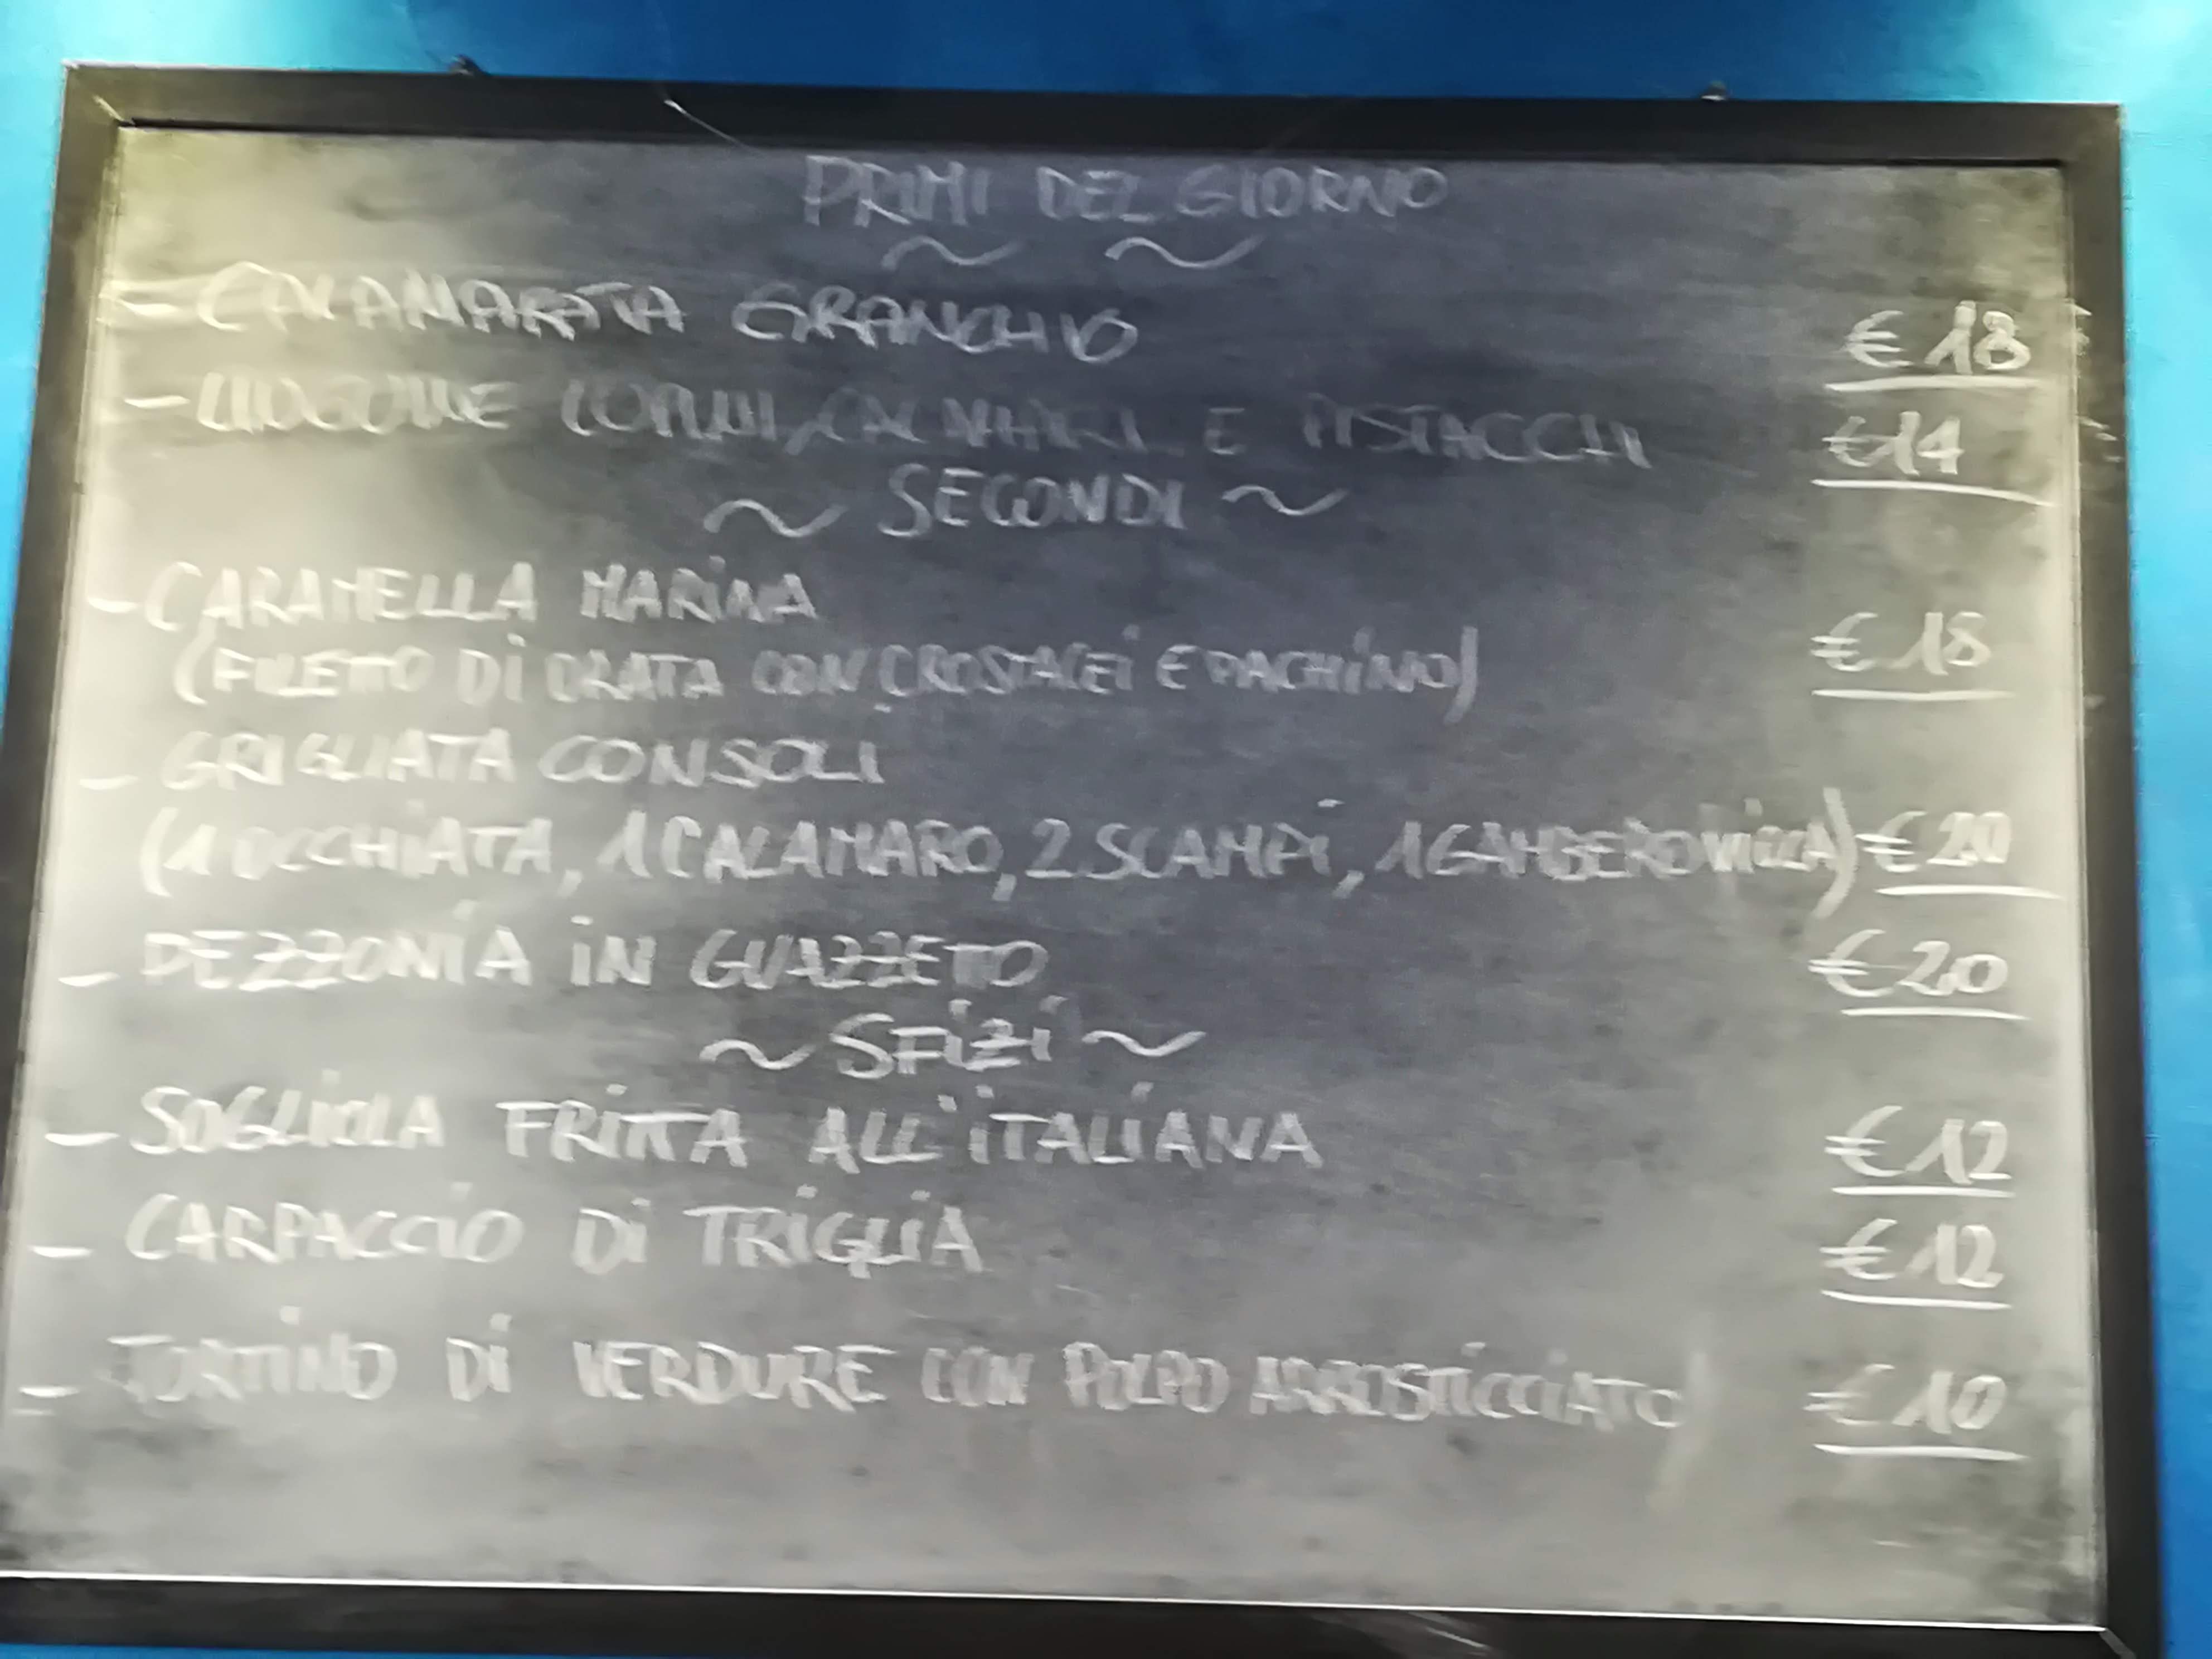 PRIMI DEL GIORNO
- CALAMARATA GRANCHIO € 18
- E PISTACCHI €14
~ SECONDI ~
- CARAMELLA MARINA
(FILETTO DI ORATA CON CROSTACEI E PACHINO) € 18
- GRIGLIATA CONSOLI
(1 OCCHIATA, 1 CALAMARO, 2 SCAMPI, 1 GAMBERO) € 20
- PEZZONIA IN GUAZZETTO € 20
~ SFIZI ~
- SOGLIOLA FRITTA ALL'ITALIANA € 12
- CARPACCIO DI TRIGLIA € 12
- TORTINO DI VERDURE CON POLPO ARROSTICCIATO € 10